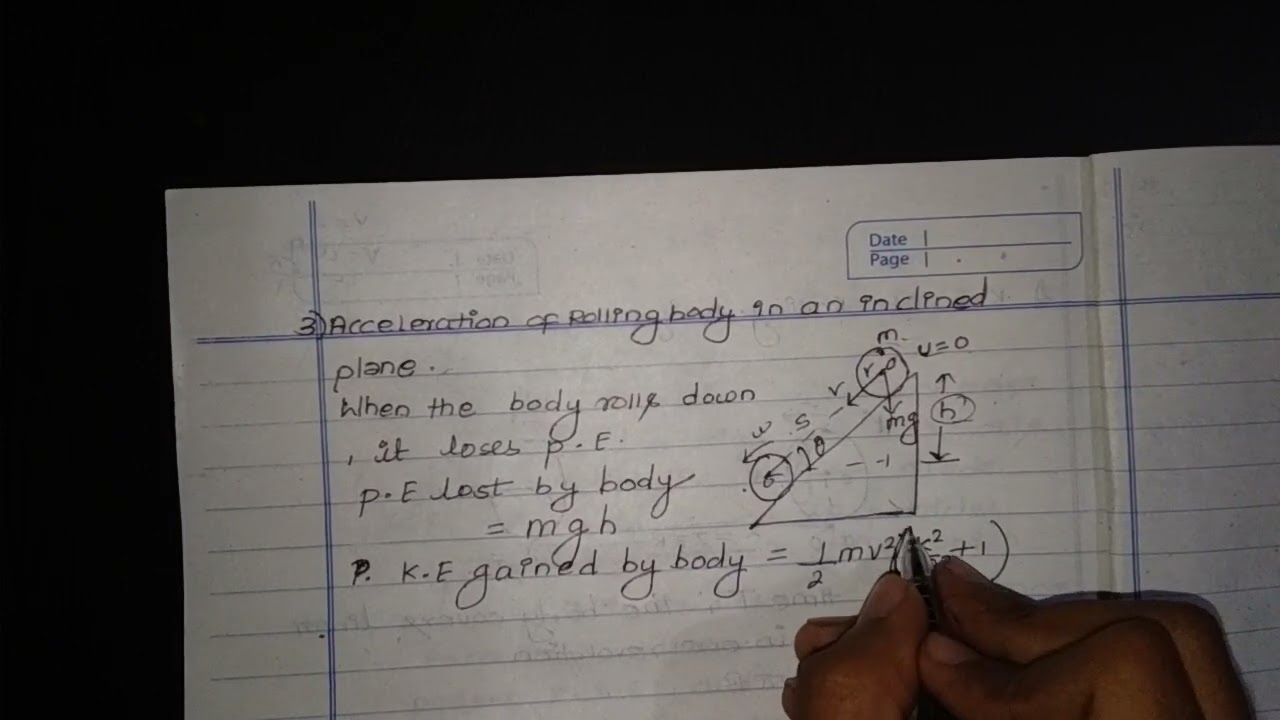 Date
Page
3) Acceleration of Rolling body in an inclined
plane.
When the body rolls down
, it loses p.E.
p.E lost by body
= mgh
P. K.E gained by body = 1/2 mv² +1)
m
u=0
r
v
s
w
mg
h
θ